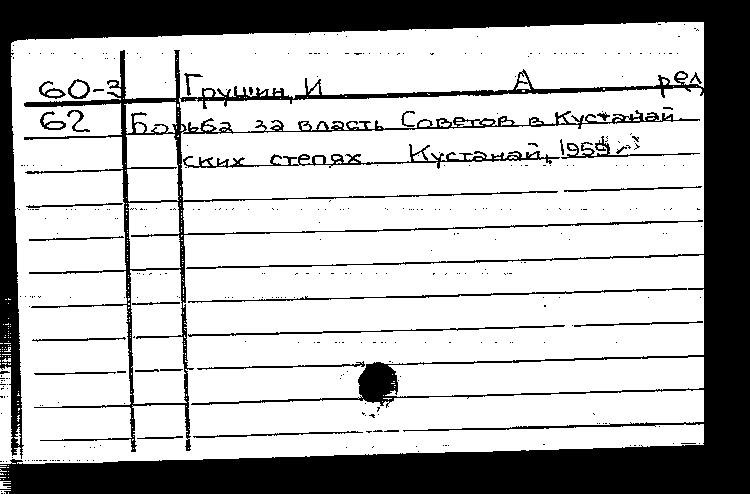 60-3 Грушин, И А ред,
62 Борьба за власть Советов в Кустанай
ских степях Кустанай,